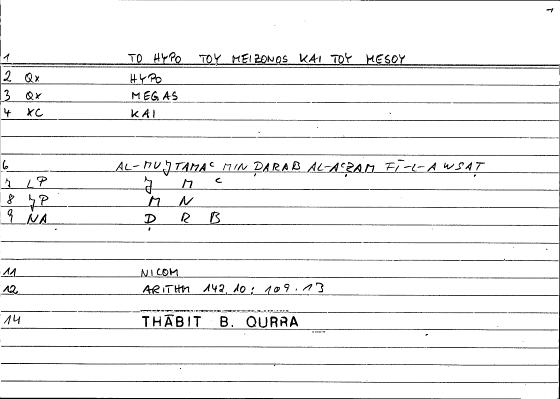 1 TO HYPO TOY MEIZONOS KAI TOY MESOY
2 QX HYPO
3 QX MEGAS
4 XC KAI
6 AL-MUǦTAMAᶜ MIN ḌARAB AL-AᶜẒAM FĪ-L-AWSAṬ
7 LP Ǧ M ᶜ
8 ǦP M N
9 NA Ḍ R B
11 NICOM
12 ARITHM 142.10; 109.13
14 THĀBIT B. QURRA